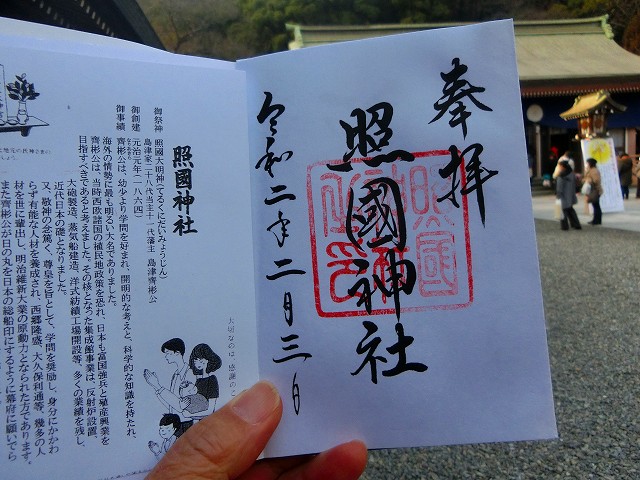 奉拝
照國神社
令和二年二月三日
照國神社
御祭神 照國大明神(てるくにだいみょうじん)
島津家二十八代当主十一代藩主 島津齊彬公
御創建 元治元年(一八六四)
御事績 齊彬公は、幼少より学問を好まれ、開明的な考えと、科学的な知識を持たれ、
海外の情勢に最も明るい大名でありました。
齊彬公は、当節西欧諸国の植民地政策を恐れ、日本も富国強兵と殖産興業を
目指すべきであると考えました。その核となった集成館事業は、反射炉設置、
大砲製造、蒸気船建造、洋式紡績工場開設等、多くの業績を残し、
近代日本の礎となりました。
又、敬神の念篤く、尊皇を旨として、学問を奨励し、身分にかかわ
らず有能な人材を養成され、西郷隆盛、大久保利通等、幾多の人
材を世に輩出し、明治維新大業の原動力となられた方であります。
また齊彬公が日の丸を日本の総船印にするように幕府に願いでら
大切なのは、感謝のこ